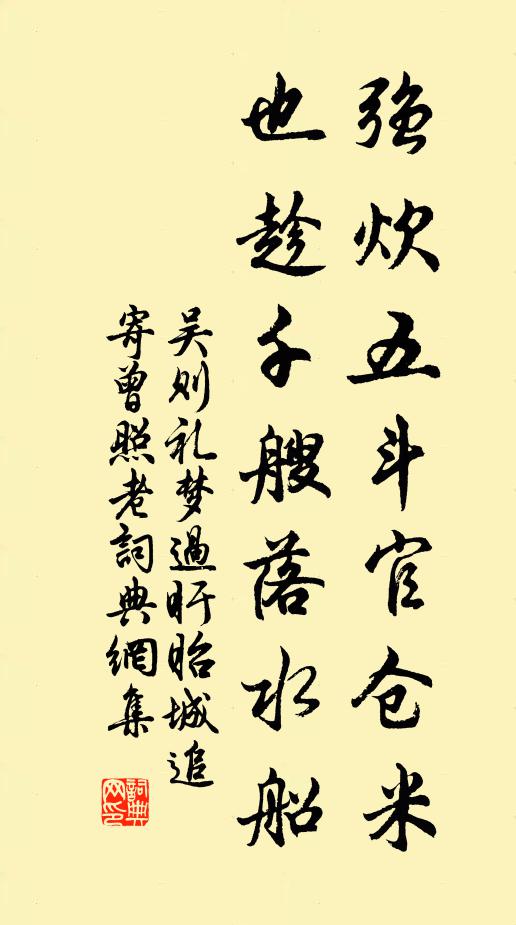 强炊五斗官仓米
也趁千艘落水船
吴则礼梦過盱眙城追
寄曾照老詞典網集
詞典網印